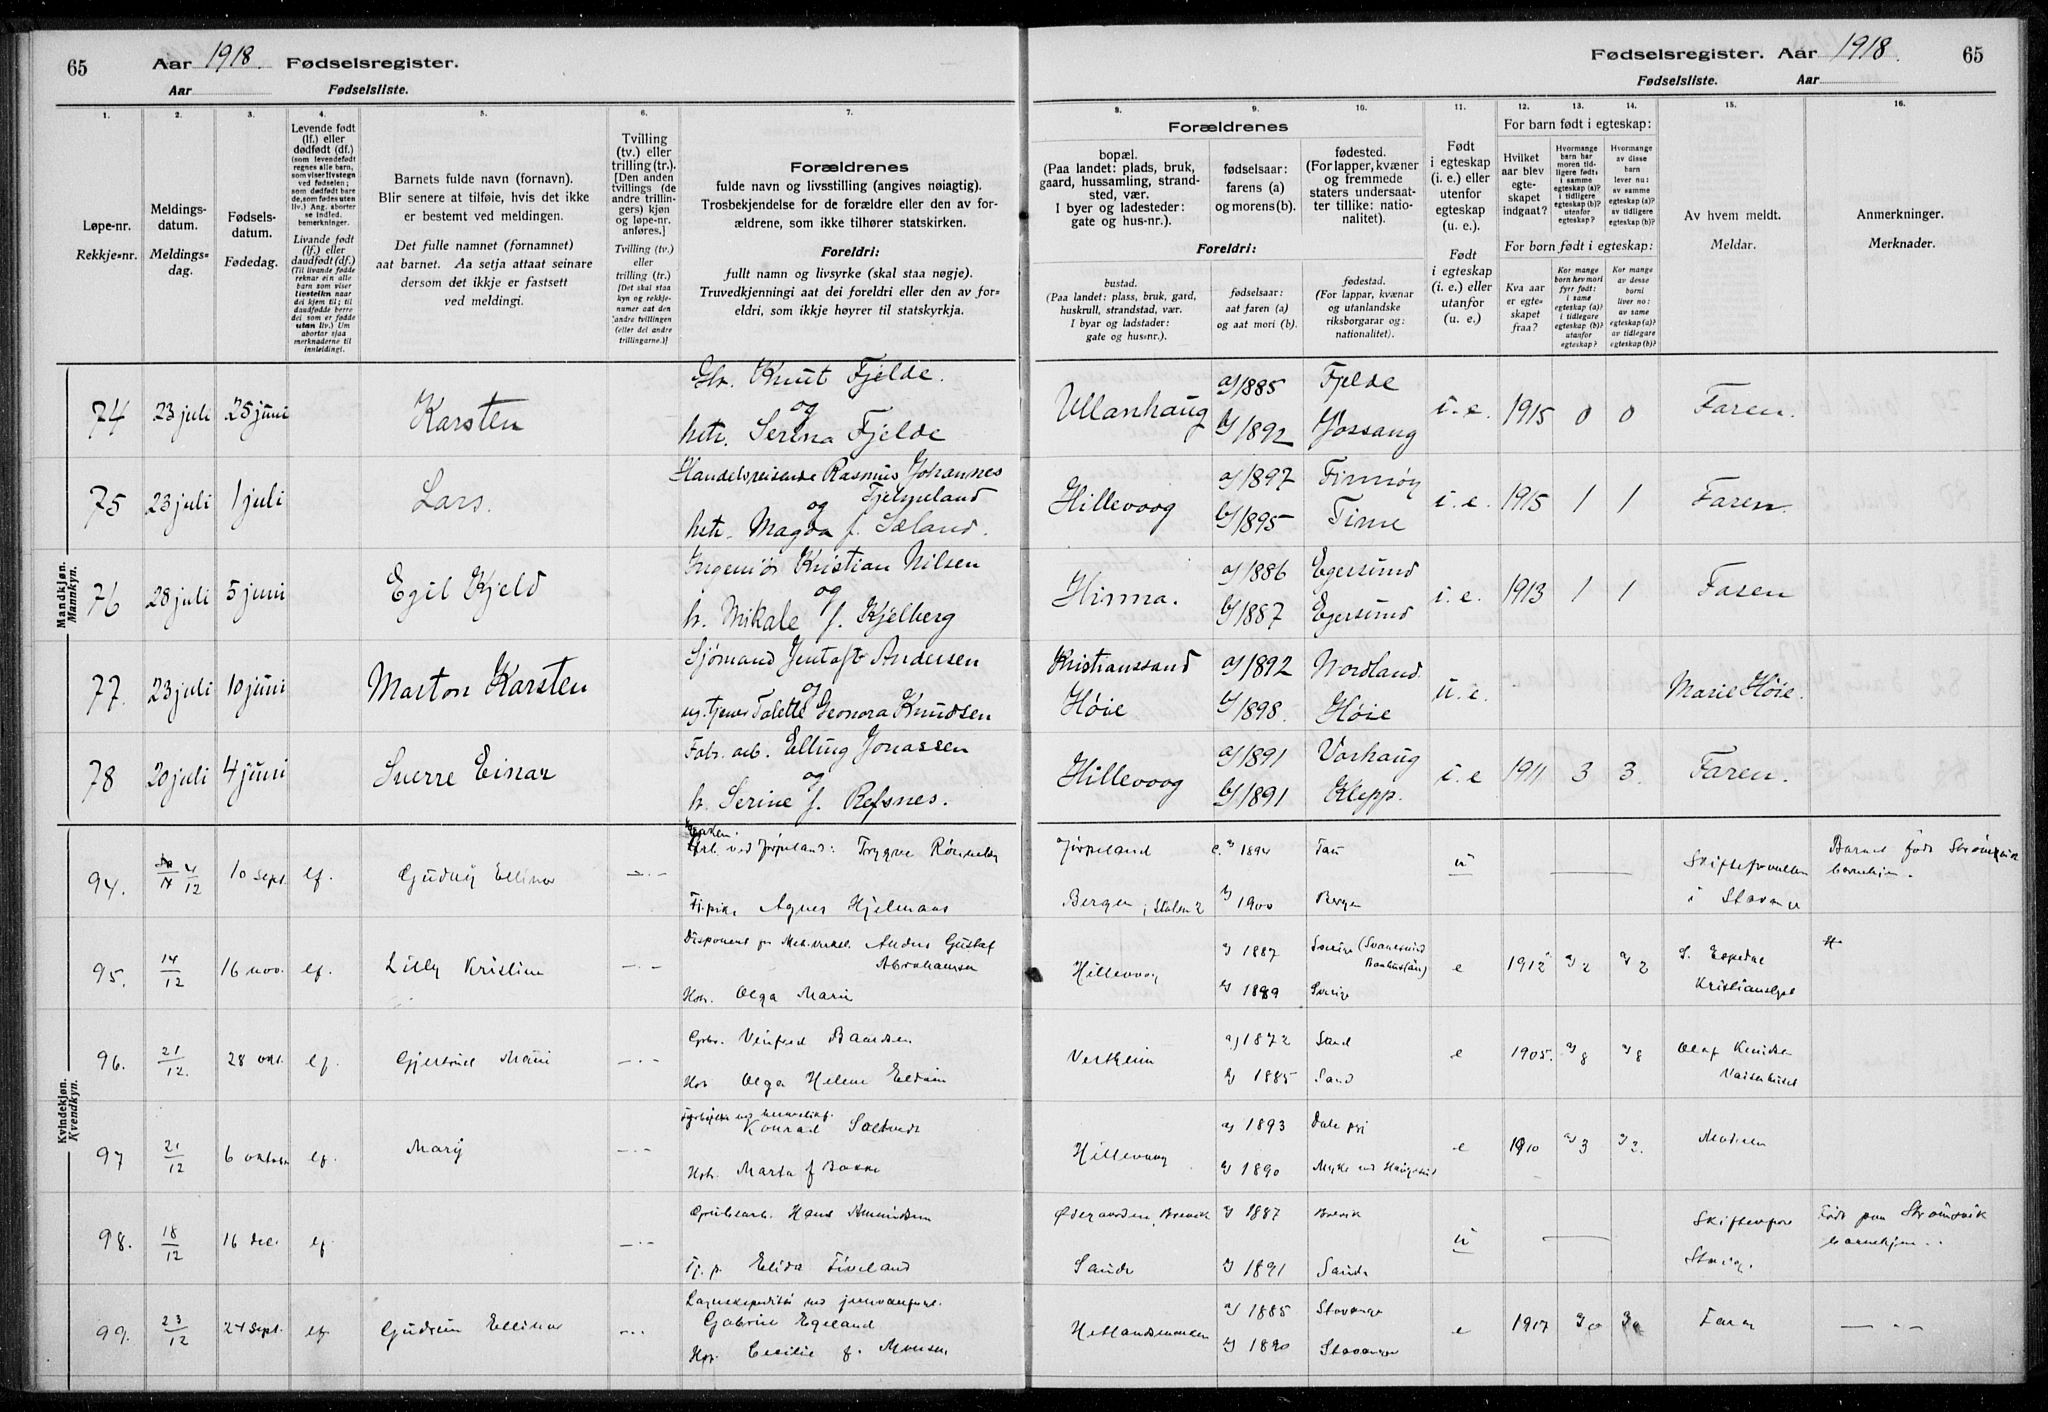 65 Aar 1918. Fødselsregister.
Aar Fødselsliste.
Fødselsregister. Aar 1918. 65
Fødselsliste. Aar
1. 2. 3. 4. 5. 6. 7.
8. 9. 10. 11. 12. 13. 14. 15. 16.
Løpe-nr.
Rekkje-nr.
Meldings-
datum.
Meldings-
dag.
Fødsels-
datum.
Fødedag.
Levende født
(lf.) eller
dødfødt (df.)
(som levendefødt
regnes alle barn,
som viser livstegn
ved fødselen;
som dødfødt bare
de, som fødes uten
liv.) Ang. aborter
se indled.
bemerkninger.
Livande født
(lf.) eller
daudfødt (df.)
(Til livande fødde
reknar ein alle
barn som viser
livsteikn naar
dei kjem til; til
daudfødde berre
dei som er fødde
utan liv.) Um
abortar sjaa
merknaderne til
innleidingi.
Barnets fulde navn (fornavn).
Blir senere at tilføie, hvis det ikke
er bestemt ved meldingen.
Det fulle namnet (fornamnet)
aat barnet. Aa setja attaat seinare
dersom det ikkje er fastsett
ved meldingi.
Tvilling
(tv.) eller
trilling (tr.).
[Den anden
tvillings (de
andre trillin-
gers) kjøn
og løpe-nr.
anføres.]
Tvilling (tv.)
eller
trilling (tr.)
[Det skal staa
kyn og rekkje-
numer aat den
andre tvillingen
(eller dei andre
trillingarne.)]
Forældrenes
fulde navn og livsstilling (angives nøiagtig).
Trosbekjendelse for de forældre eller den av for-
ældrene, som ikke tilhører statskirken.
Foreldri:
fullt namn og livsyrke (skal staa nøgje).
Truvedkjenningi aat dei foreldri eller den av for-
eldri, som ikkje høyrer til statskyrkja.
Forældrenes
bopæl.
(Paa landet: plads, bruk,
gaard, hussamling, strand-
sted, vær.
I byer og ladesteder:
gate og hus-nr.).
fødselsaar:
farens (a)
og morens (b).
fødested.
(For lapper, kvæner
og fremmede
staters undersaat-
ter tillike: natio-
nalitet).
Foreldri:
bustad.
(Paa landet: plass, bruk, gard,
huskrull, strandstad, vær.
I byar og ladstader:
gate og hus-nr.).
fødselsaar:
aat faren (a)
og aat mori (b).
fødestad.
(For lappar, kvænar
og utanlandske
riksborgarar og:
nationalitet).
Født
i egteskap
(i. e.) eller
utenfor
egteskap
(u. e.).
Født
i egteskap
(i. e.) eller
utanfor
egteskap
(u. e.)
For barn født i egteskap:
Hvilket
aar blev
egte-
skapet
indgaat?
Hvormange
barn har
moren tid-
ligere født:
i samme
egteskap (a)?
i tidligere
egteskap (b)?
utenfor
egteskap?
Hvormange
av disse
barn
lever nu:
av samme
egteskap (a)?
av tidligere
egteskap (b)?
For born født i egteskap:
Kva aar
er egte-
skapet
fraa?
Kor mange
born hev mori
fyrr født:
i same
egteskap (a)?
i tidlegare
egteskap (b)?
utanfor
egteskap?
Kor mange
av desse
borni
liver no:
av same
egteskap (a)?
av tidlegare
egteskap (b)?
Av hvem meldt.
Meldar.
Anmerkninger.
Merknader.
Mandkjøn.
Mannkyn.
74 23 juli 25 juni Karsten Gbr. Knut Fjelde.
og
hstr. Serina Fjelde
Ullanhaug a/1885 Fjelde
b/1892 Jøssang
i. e. 1915 0 0 Faren.
75 23 juli 1 juli Lars. Handelsreisende Rasmus Johannes
Fjelpeland
og
hstr. Magda f. Sæland.
Hillevaag a/1897 Finnøy
b/1895 Time
i. e. 1915 1 1 Faren.
76 28 juli 5 juni Egil Kjeld Ingeniør Kristian Nilsen
og
h. Mikale f. Kjelberg
Hinna. a/1886 Egersund
b/1887 Egersund
i. e. 1913 1 1 Faren
77. 23 juli 10 juni Marton Karsten Sjømand Jentoft Andersen
og
ug. tjener Talette Leonora Knudsen
Kristianssand a/1892 Nordland
Høie b/1898. Høie
u. e. - Marie Høie.
78 20 juli 4 juni Sverre Einar Fabr. arb. Elling Jonassen
og
h. Serine f. Refsnes.
Hillevaag a/1891 Varhaug
b/1891 Klepp.
i. e 1911 3 3. Faren.
Kvindekjøn.
Kvendkyn.
94. 4/12 10 sept. lf. Gudny Ellinor ved Jørpeland: Trygve Rønneby
Tj. pike Agnes Hjelmaas
Jørpeland a/1894 Tau
Bergen, Stølen 2 b/1900 Bergen
u Skifteforvalten
i Stavanger
Barnet født Strømsvik
barnehjem.
95. 14/12 16 nov. lf. Lilly Kristine Disponent Anders Gustaf
Abrahamsen
Hstr. Olga Marie
Hillevaag a/1887 Sverige (Svanesund
Bonhuslän)
b/1889 Sverige
e 1912 a/2 a/2 S. Espedal
Kristianslyst
96. 21/12. 28 okt. lf. Gjertrud Marie Gbr. Vinfred Baardsen
Hst. Olga Helene Eldøin
Vestheim a/1872 Sand
b/1885 Sand
e 1905. a/8 a/8 Olaf Knudsen
Vaisenhuset
97 21/12 6 oktober lf. Mary Konrad Soltvedt
Hstr. Marta f Bakke
Hillevaag a/1893 Dale pri
b/1890 Mykje ved Haugesund
e 1910 a/3 a/3. Moderen
98. 18/12 16 dec. lf Grubearb. Hans Amundsen
Tj. p. Elida Tiveland
Brevik a/1887 Brevik
Sande b/1891 Sande
u Skifteforv
Stvgr.
Født paa Strømsvik
barnehjem..
99. 23/12 24 sept. lf Gudrun Ellinor Lagerekspeditør ved jernvarefore.
Gabriel Egeland
Hstr. Cecilie f. Monsen
Hetlandsmarken a/1885 Stavanger
b/1890 Stavanger
e 1917 a/0 a/0 Faren